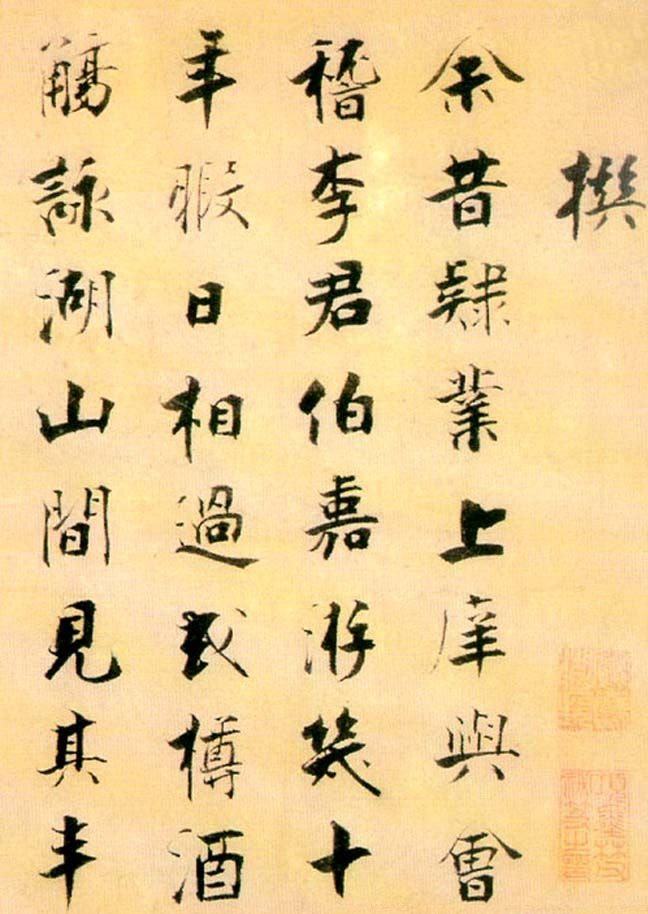 撰
余昔肄業上庠與會
稽李君伯嘉游幾十
年暇日相過或樽酒
觴詠湖山間見其丰